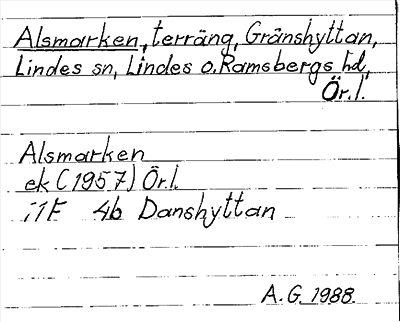 Alsmarken, terräng, Gränshyttan,
Lindes sn, Lindes o. Ramsbergs hd,
Ör.l.
Alsmarken
ek (1957) Ör.l.
11F 4b Danshyttan
A.G. 1988.